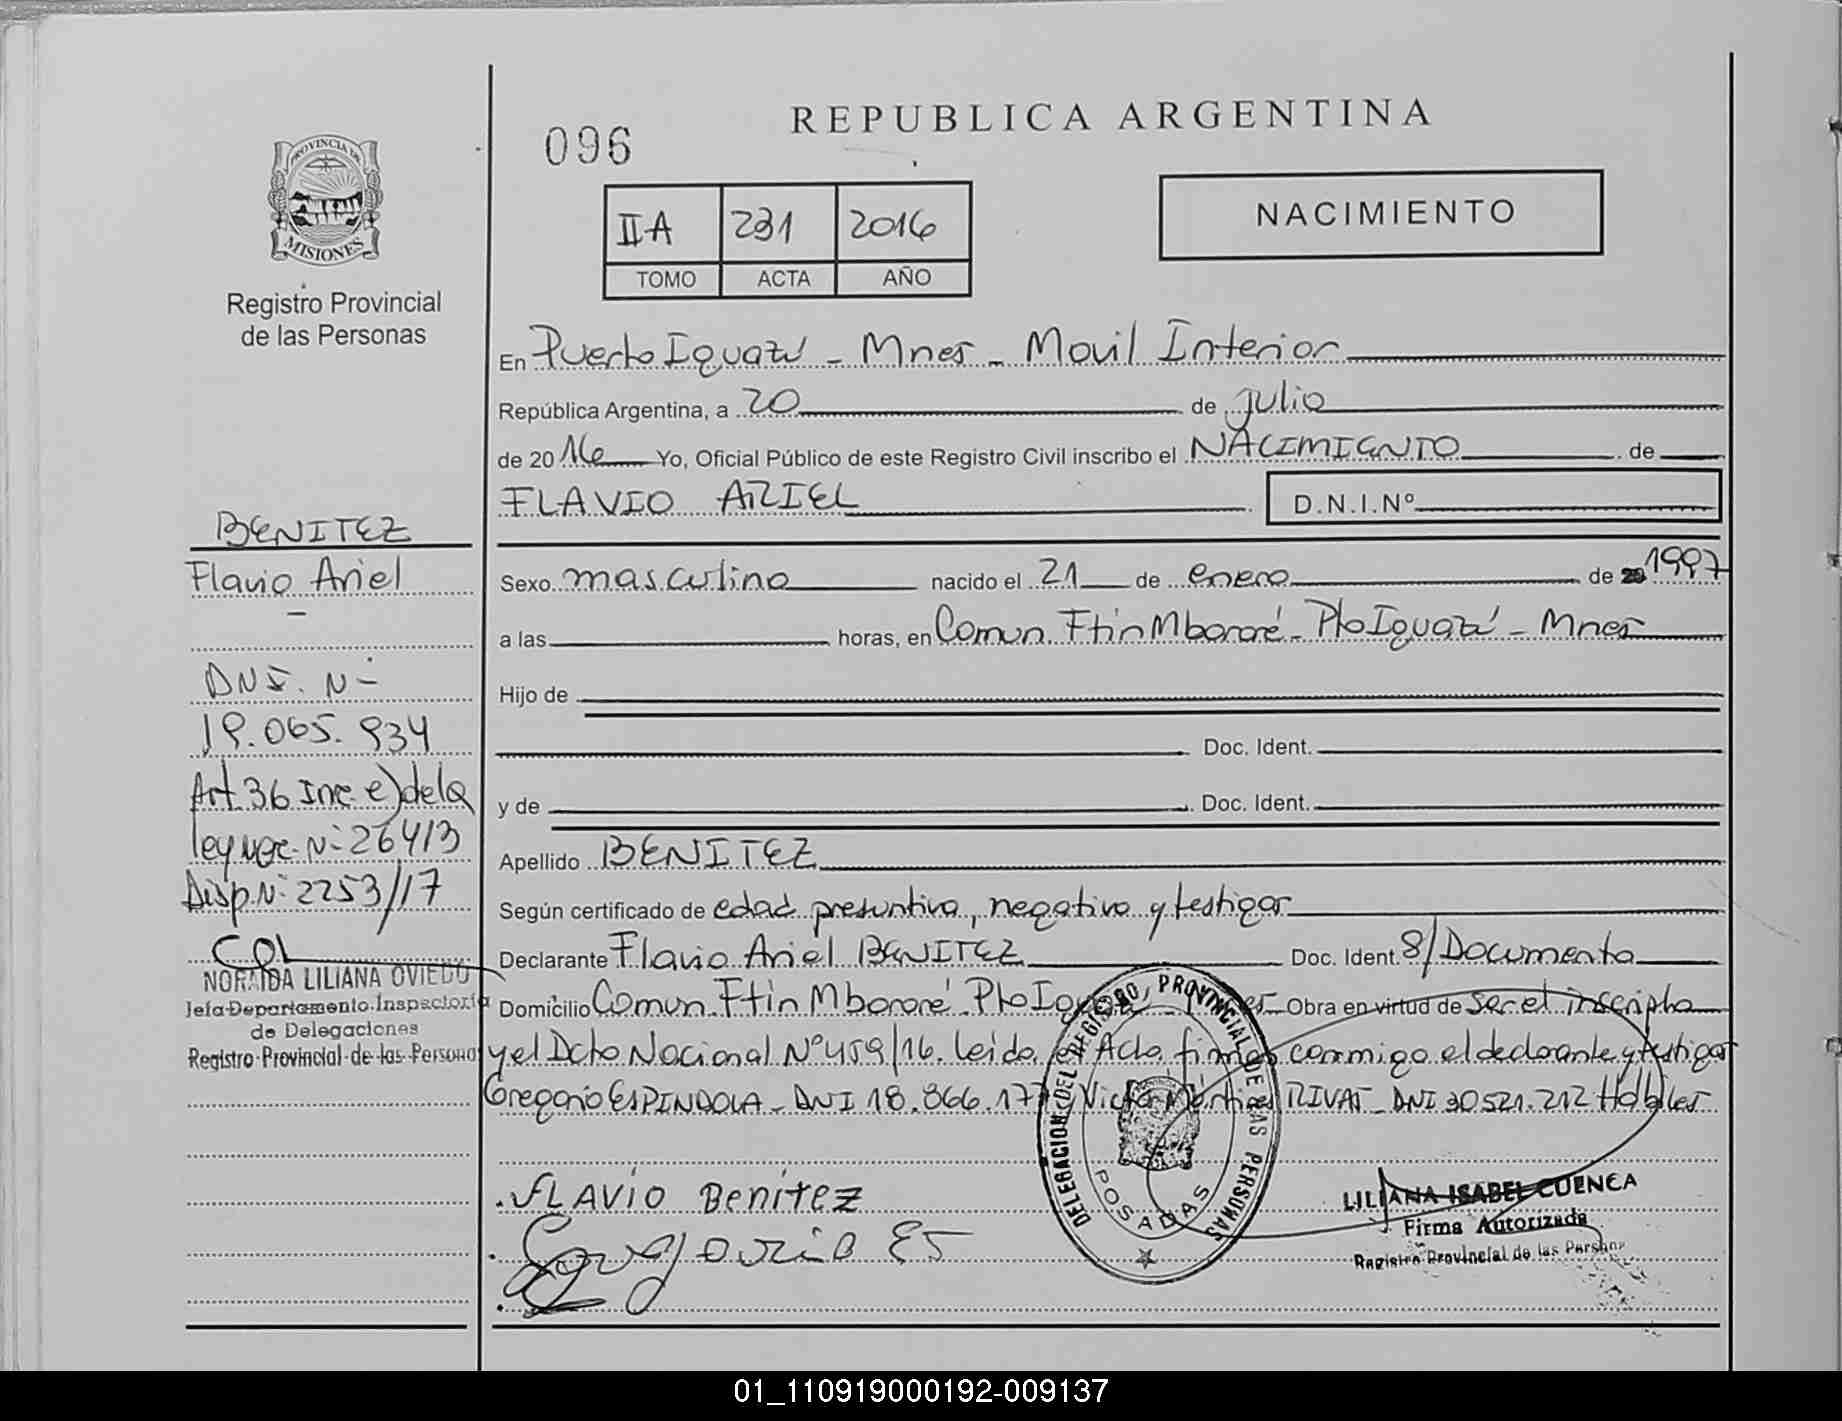 REPUBLICA ARGENTINA
096
PROVINCIA DE
MISIONES
Registro Provincial
de las Personas
II A 231 2016
TOMO ACTA AÑO
NACIMIENTO
En Puerto Iguazú - Mnes - Movil Interior
República Argentina, a 20 de julio
de 2016 Yo, Oficial Público de este Registro Civil inscribo el NACIMIENTO de
FLAVIO ARIEL D.N.I.Nº
BENITEZ
Flavio Ariel
-
DNI. Nº
19.065.934
Art. 36 Inc. e) de la
ley Nº 26413
Disp. Nº 2253/17
NORAIDA LILIANA OVIEDO
Jefa Departamento Inspectoría
de Delegaciones
Registro Provincial de las Personas
Sexo masculino nacido el 21 de enero de 1997
a las horas, en Comun. Ftin Mbororé - Pto Iguazú - Mnes
Hijo de
Doc. Ident.
y de Doc. Ident.
Apellido BENITEZ
Según certificado de edad presuntiva, negativo y testigos
Declarante Flavio Ariel BENITEZ Doc. Ident. S/Documento
Domicilio Comun. Ftin Mbororé Pto Obra en virtud de ser el inscripto
y el Dcto Nacional Nº 459/16. leido el Acto, firman conmigo el declarante y testigos
Gregorio ESPINDOLA - DNI 18.866.177 Victor RIVAS - DNI 30521.212 Hábiles
DELEGACION DEL REGISTRO PROVINCIAL DE LAS PERSONAS
POSADAS
FLAVIO Benitez
Gregorio ES
LILIANA ISABEL CUENCA
Firma Autorizada
Registro Provincial de las Personas
01_110919000192-009137